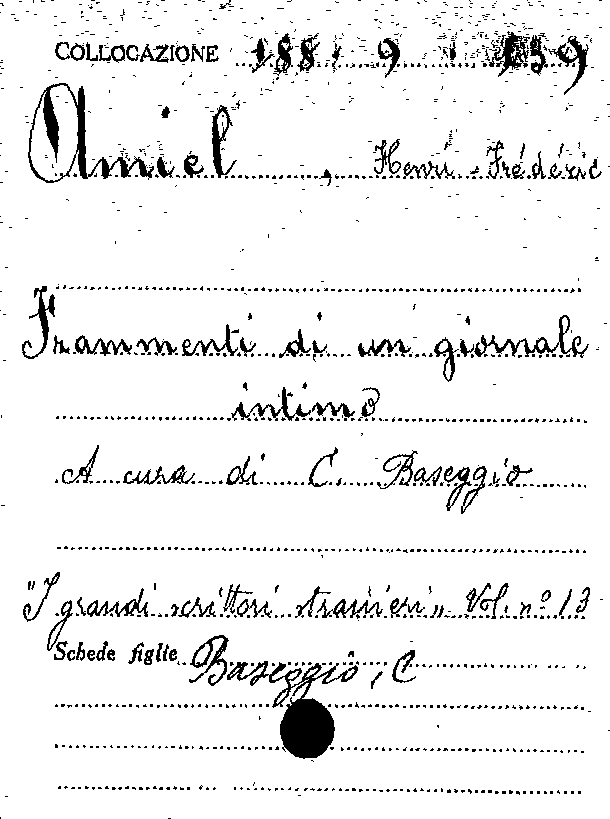 COLLOCAZIONE 188 9 159
Amiel, Henri-Frédéric
Frammenti di un giornale
intimo
A cura di C. Baseggio
"I grandi scrittori stranieri" Vol. nº 13
Schede figlie Baseggio, C